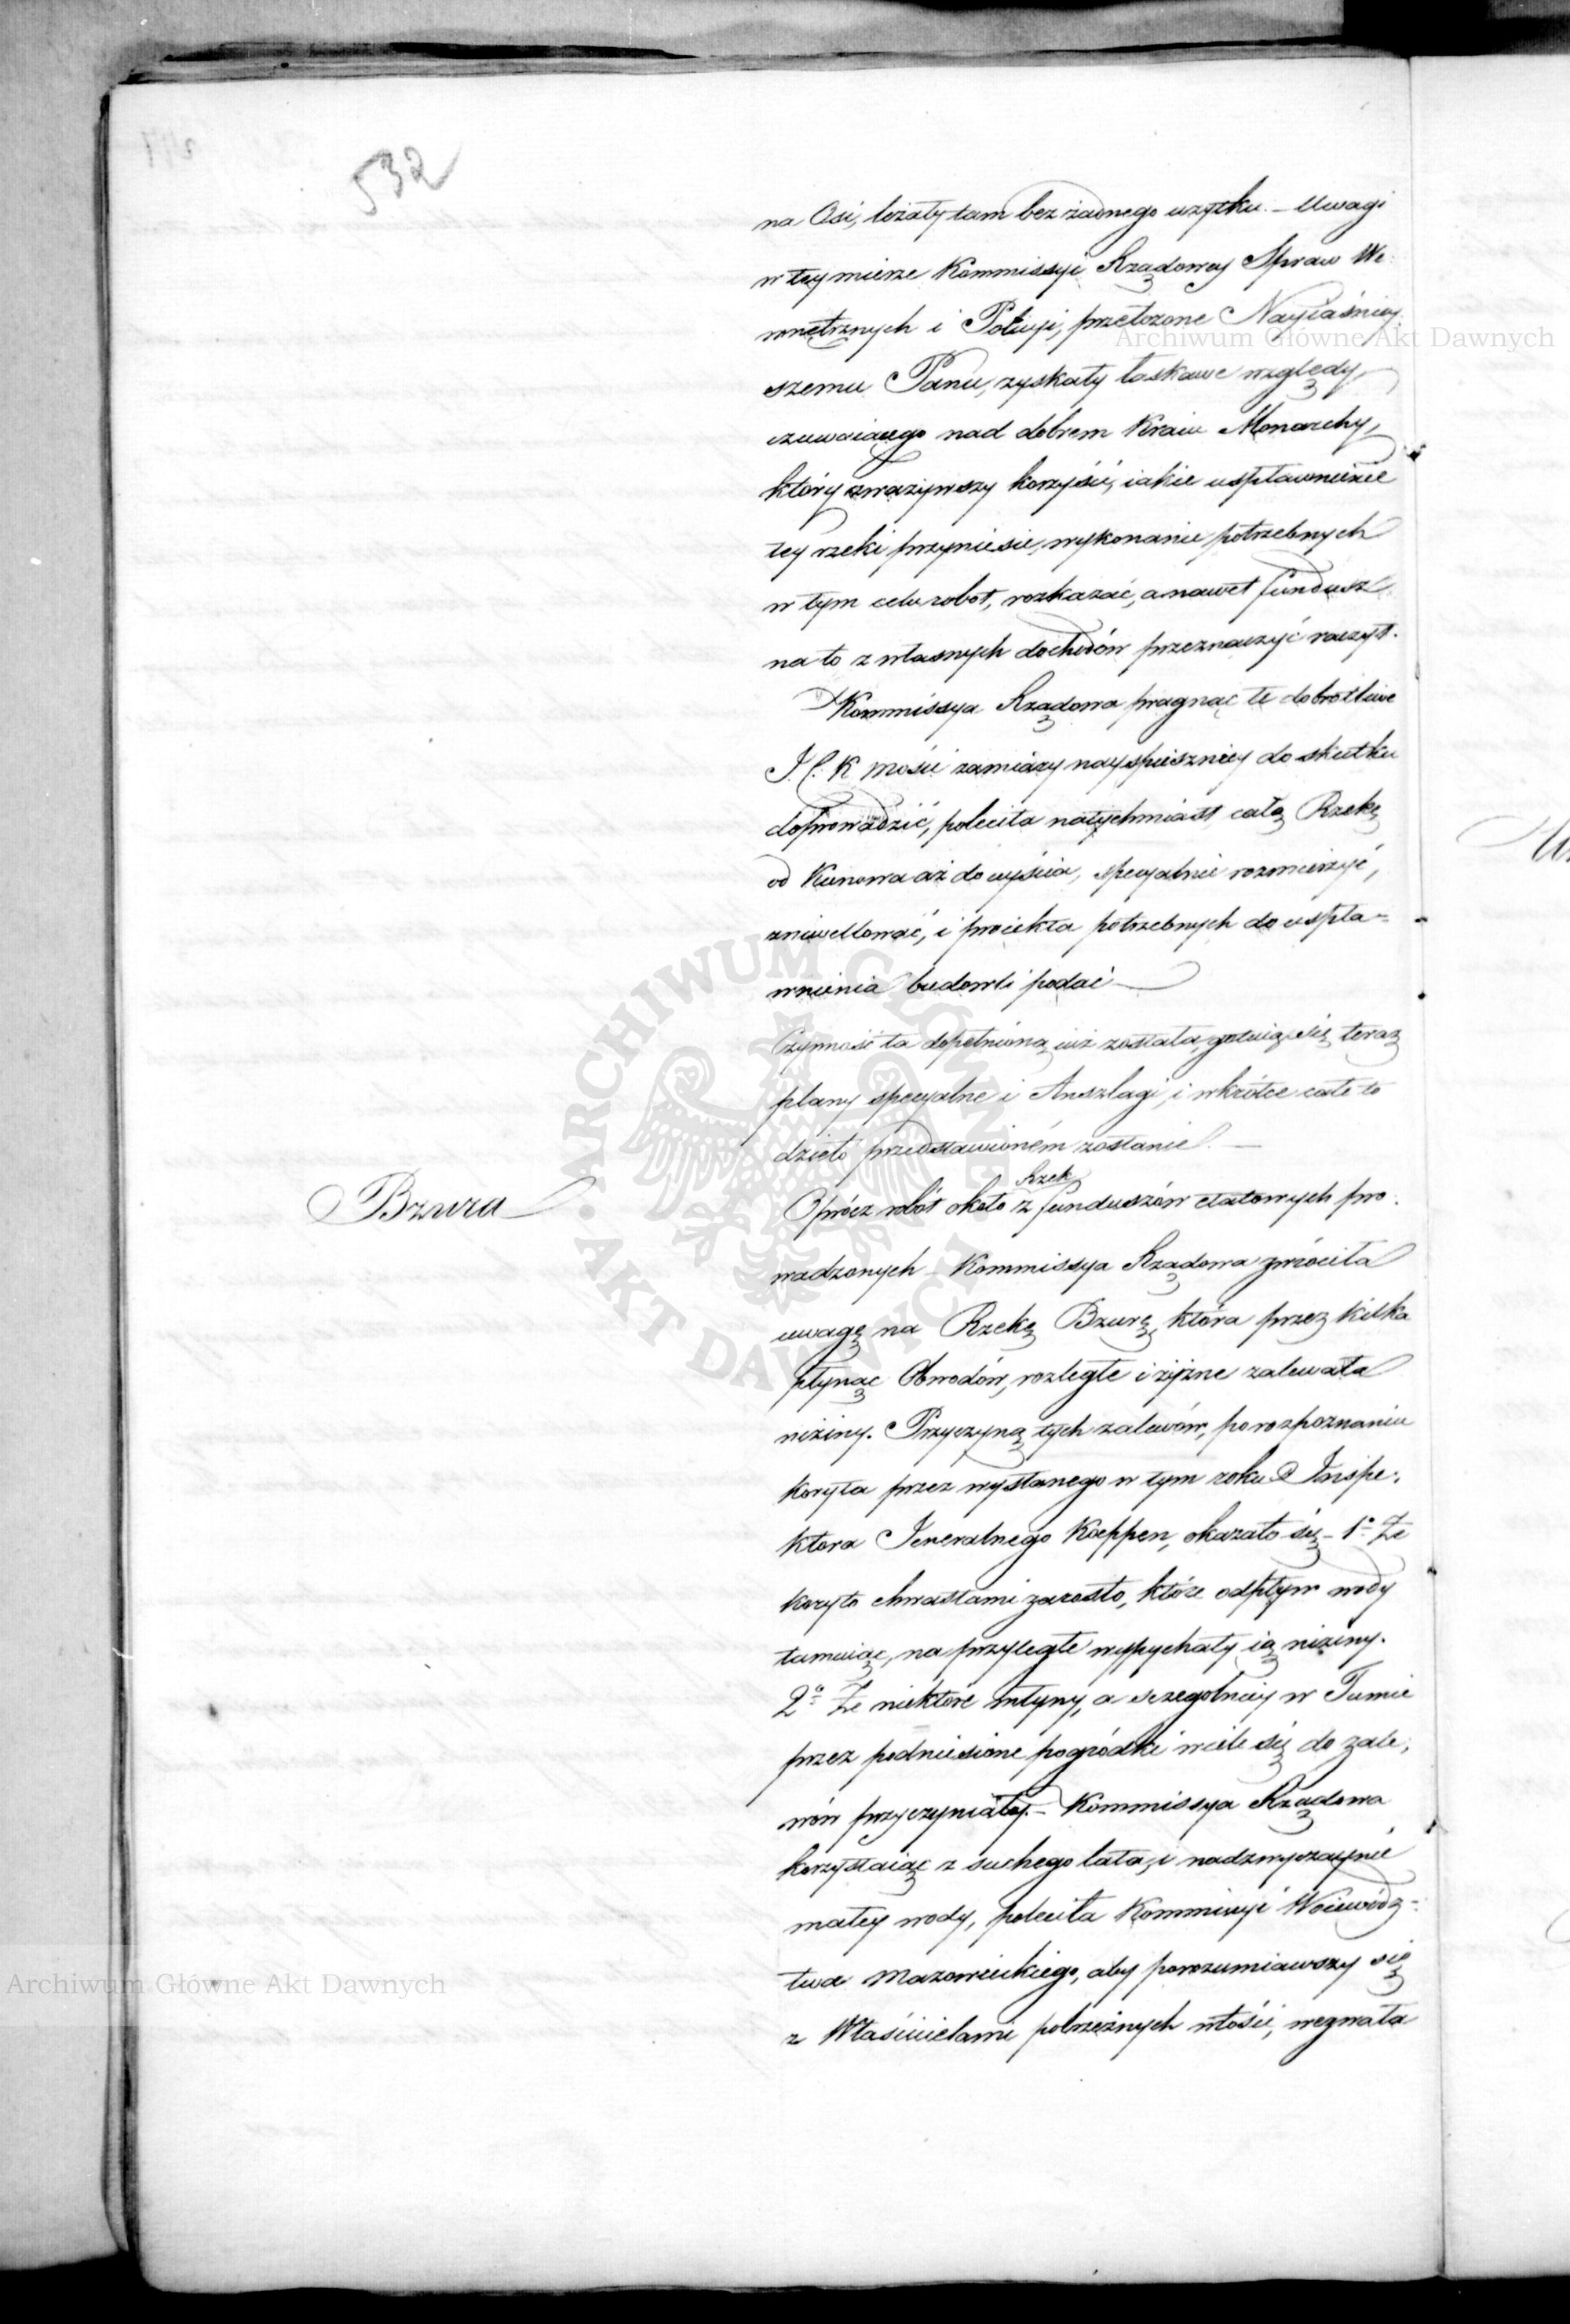 532
na Osi, leżały tam bez żadnego użytku. – Uwagi
w tey mierze Kommissyi Rządowey Spraw We-
wnętrznych i Policyi, przełożone Nayiaśniey-
szemu Panu, zyskały łaskawe względy,
czuwaiącego nad dobrem Kraiu Monarchy,
który zważywszy korzyści, iakie uspławnienie
tey rzeki przyniesie, wykonanie potrzebnych
w tym celu robot, rozkazać, a nawet fundusz
na to z własnych dochodów przeznaczyć raczył.
Kommissya Rządowa pragnąc te dobrotliwe
J. C. K Mości zamiary nayspieszniey do skutku
doprowadzić, poleciła natychmiast całą Rzekę
od Kunowa aż do uyścia, specyalnie rozmierzyć,
zniwellować, i proiekta potrzebnych do uspła-
wnienia budowli podać –
Czynność ta dopełnioną iuż została, gotuią się teraz
plany specyalne i Anszlagi, i wkrótce całe to
dzieło przedstawioném zostanie. –
Bzura
Rzek
Oprócz robót około z funduszów etatowych pro-
wadzonych – Kommissya Rządowa zwróciła
uwagę na Rzekę Bzurę, która przez kilka
płynąc Obwodów, rozległe i żyzne zalewała
niziny. Przyczyną tych zalewów, po rozpoznaniu
koryta przez wysłanego w tym roku Inspe-
ktora Jeneralnego Koeppen, okazało się – 1º Że
koryto chwastami zarosło, które odpływ wody
tamuiąc, na przyległe wypychały ią niziny.
2º Że niektóre młyny, a szczególniey w Tumie
przez podniesione pogródki wiele się do zale-
wów przyczyniały. – Kommissya Rządowa
korzystaiąc z suchego lata, i nadzwyczaynie
małey wody, poleciła Kommissyi Woiewódz-
twa Mazowieckiego, aby porozumiawszy się
z Właścicielami pobrzeżnych włości, wezwała
Archiwum Główne Akt Dawnych
Archiwum Główne Akt Dawnych
ARCHIWUM GŁÓWNE AKT DAWNYCH